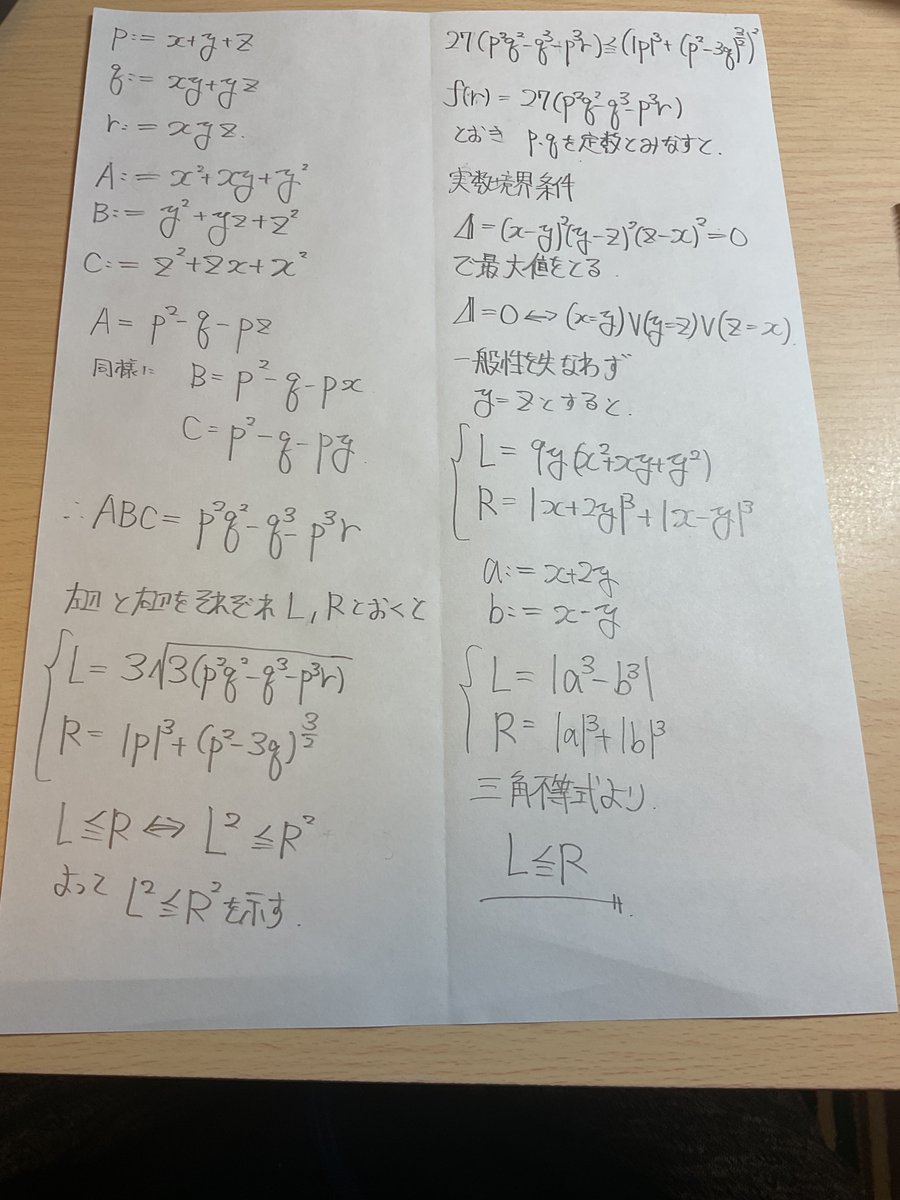 p:= x+y+z
q:= xy+yz
r:= xyz.
A:= x²+xy+y²
B:= y²+yz+z²
C:= z²+zx+x²
A= p²-q-pz
同様に B= p²-q-px
C= p²-q-py.
∴ABC= p²q²-q³-p³r
左辺と右辺をそれぞれL,Rとおくと
L= 3√3(p²q²-q³-p³r)
R= |p|³+(p²-3q)^{3/2}
L≦R⇔L²≦R²
よって L²≦R²を示す.
27(p²q²-q³-p³r)≦(|p|³+(p²-3q)^{3/2})²
f(r)=27(p²q²-q³-p³r)
とおき p.qを定数とみなすと.
実数境界条件
Δ=(x-y)²(y-z)²(z-x)²=0
で最大値をとる.
Δ=0⇔(x=y)∨(y=z)∨(z=x).
一般性を失なわず
y=zとすると.
L= 9y(x²+xy+y²)
R= |x+2y|³+|x-y|³
a:= x+2y
b:= x-y
L= |a³-b³|
R= |a|³+|b|³
三角不等式より.
L≦R